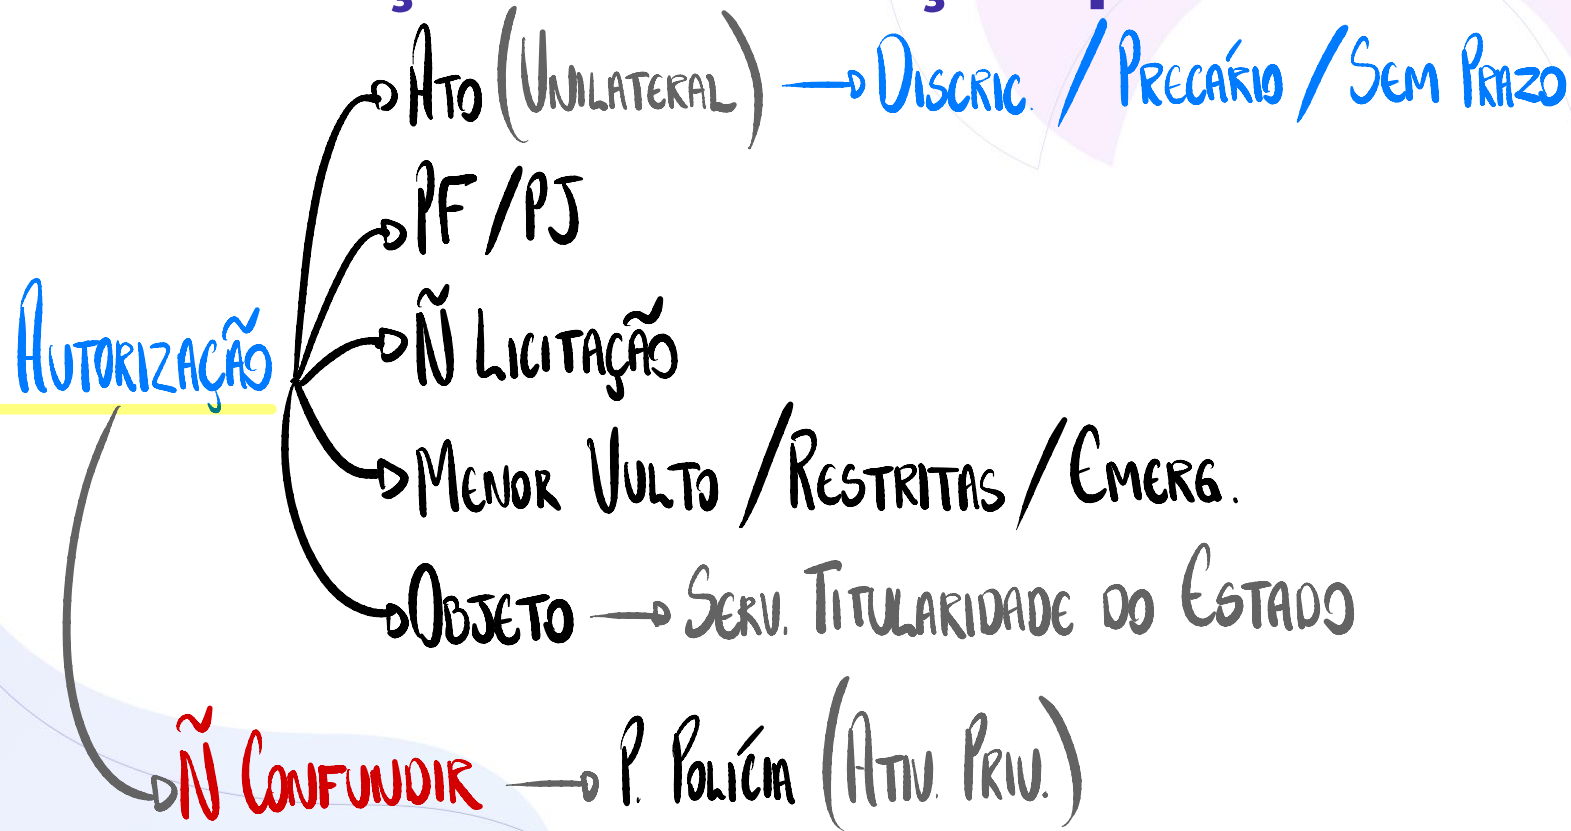 Ato (Unilateral) → Discric. / Precário / Sem Prazo
PF / PJ
Ñ Licitação
Autorização
Menor Vulto / Restritas / Emerg.
Objeto → Serv. Titularidade do Estado
Ñ Confundir → P. Polícia (Ativ. Priv.)